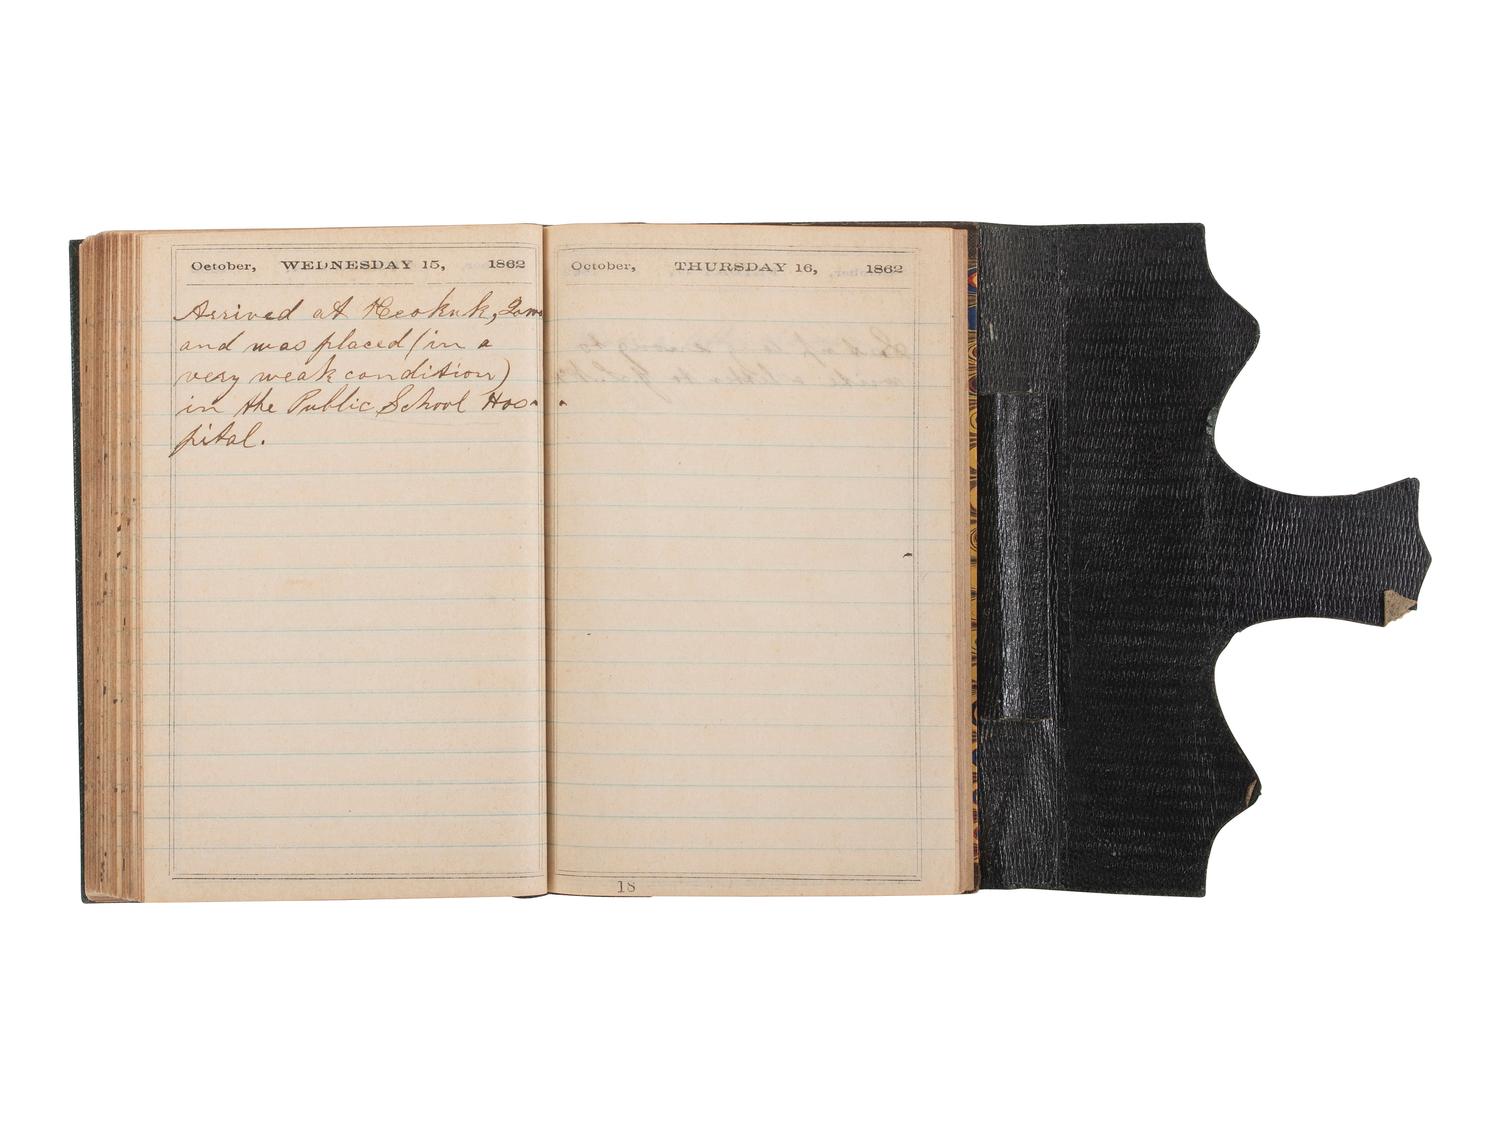 October, WEDNESDAY 15, 1862
Arrived at Keokuk, Iowa
and was placed (in a
very weak condition)
in the Public School Hos-
pital.
October, THURSDAY 16, 1862
18